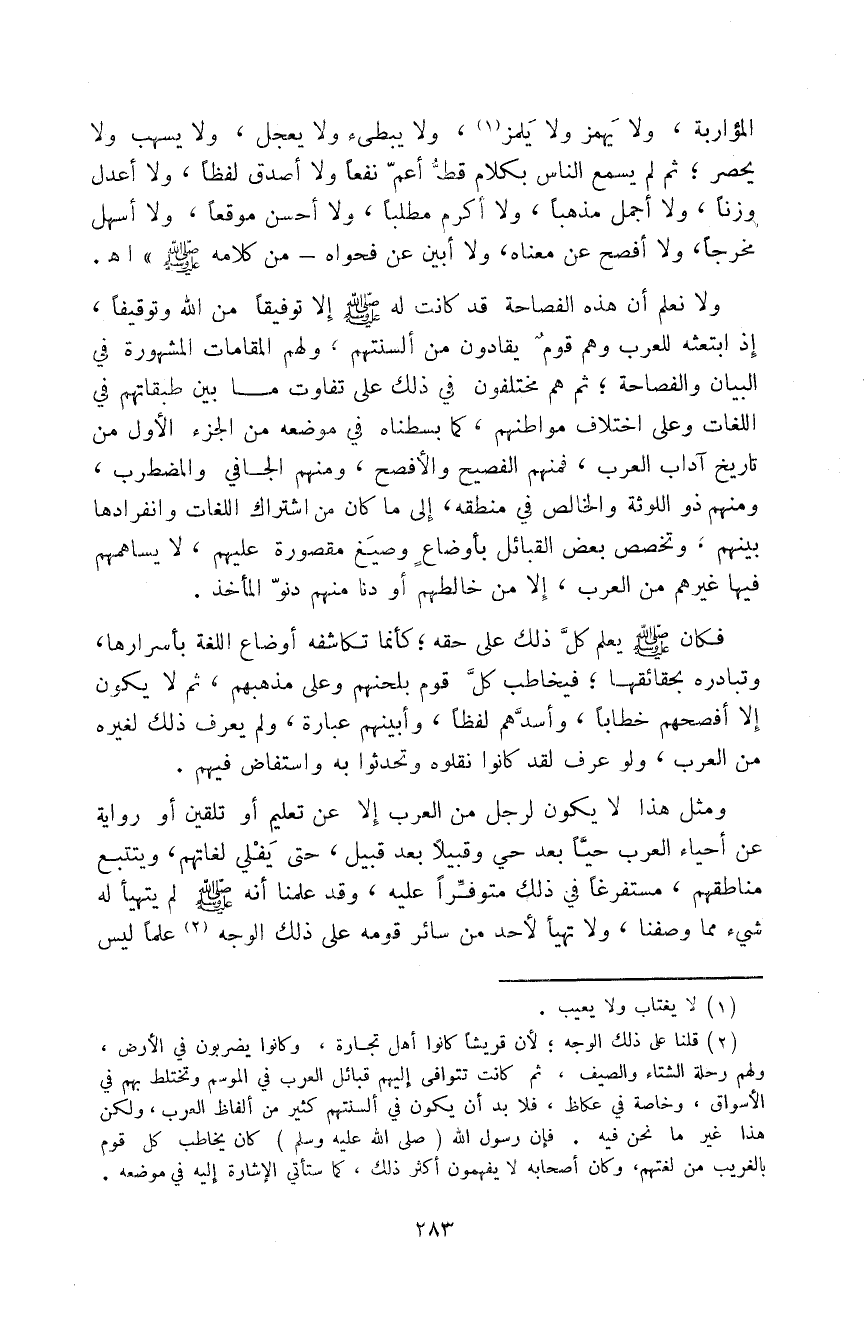 المؤاربة ، ولا يَهمز ولا يَلمز(١) ، ولا يبطىء ولا يعجل ، ولا يسهب ولا
يحصر ؛ ثم لم يسمع الناس بكلام قطُّ أعمّ نفعاً ولا أصدق لفظاً ، ولا أعدل
وزناً ، ولا أجمل مذهباً ، ولا أكرم مطلباً ، ولا أحسن موقعاً ، ولا أسهل
مخرجاً، ولا أفصح عن معناه، ولا أبين عن فحواه – من كلامه ﷺ » ا ه .
ولا نعلم أن هذه الفصاحة قد كانت له ﷺ إلا توفيقاً من الله وتوقيفاً ،
إذ ابتعثه للعرب وهم قومٌ يقادون من ألسنتهم ، ولهم المقامات المشهورة في
البيان والفصاحة ؛ ثم هم مختلفون في ذلك على تفاوت مـــا بين طبقاتهم في
اللغات وعلى اختلاف مواطنهم ، كما بسطناه في موضعه من الجزء الأول من
تاريخ آداب العرب ، فمنهم الفصيح والأفصح ، ومنهم الجـافي والمضطرب ،
ومنهم ذو اللوثة والخالص في منطقه، إلى ما كان من اشتراك اللغات وانفرادها
بينهم ، وتخصص بعض القبائل بأوضاعٍ وصيَغ مقصورة عليهم ، لا يساهمهم
فيها غيرهم من العرب ، إلا من خالطهم أو دنا منهم دنوّ المأخذ .
فكان ﷺ يعلم كلَّ ذلك على حقه ؛ كأنما تكاشفه أوضاع اللغة بأسرارها،
وتبادره بحقائقهـا ؛ فيخاطب كلَّ قوم بلحنهم وعلى مذهبهم ، ثم لا يكون
إلا أفصحهم خطاباً ، وأسدَّهم لفظاً ، وأبينهم عبارة ، ولم يعرف ذلك لغيره
من العرب ، ولو عرف لقد كانوا نقلوه وتحدثوا به واستفاض فيهم .
ومثل هذا لا يكون لرجل من العرب إلا عن تعليم أو تلقين أو رواية
عن أحياء العرب حيًّا بعد حي وقبيلاً بعد قبيل ، حتى يَفْلي لغاتهم، ويتتبع
مناطقهم ، مستفرغاً في ذلك متوفِّراً عليه ، وقد علمنا أنه ﷺ لم يتهيأ له
شيء مما وصفنا ، ولا تهيأ لأحد من سائر قومه على ذلك الوجه (٢) علماً ليس
(١) لا يغتاب ولا يعيب .
(٢) قلنا على ذلك الوجه ؛ لأن قريشاً كانوا أهل تجـارة ، وكانوا يضربون في الأرض ،
ولهم رحلة الشتاء والصيف ، ثم كانت تتوافى إليهم قبائل العرب في الموسم وتختلط بهم في
الأسواق ، وخاصة في عكاظ ، فلا بد أن يكون في ألسنتهم كثير من ألفاظ العرب ، ولكن
هذا غير ما نحن فيه . فإن رسول الله ( صلى الله عليه وسلم ) كان يخاطب كل قوم
بالغريب من لغتهم، وكان أصحابه لا يفهمون أكثر ذلك ، كما ستأتي الإشارة إليه في موضعه .
٢٨٣